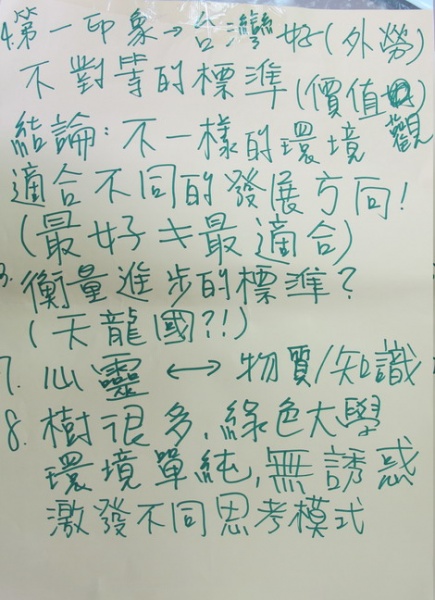 4.第一印象→台灣好(外勞)
不對等的標準(價值觀)
結論:不一樣的環境
適合不同的發展方向!
(最好≠最適合)
3.衡量進步的標準?
(天龍國?!)
7.心靈↔物質/知識
8.樹很多,綠色大學
環境單純,無誘惑
激發不同思考模式